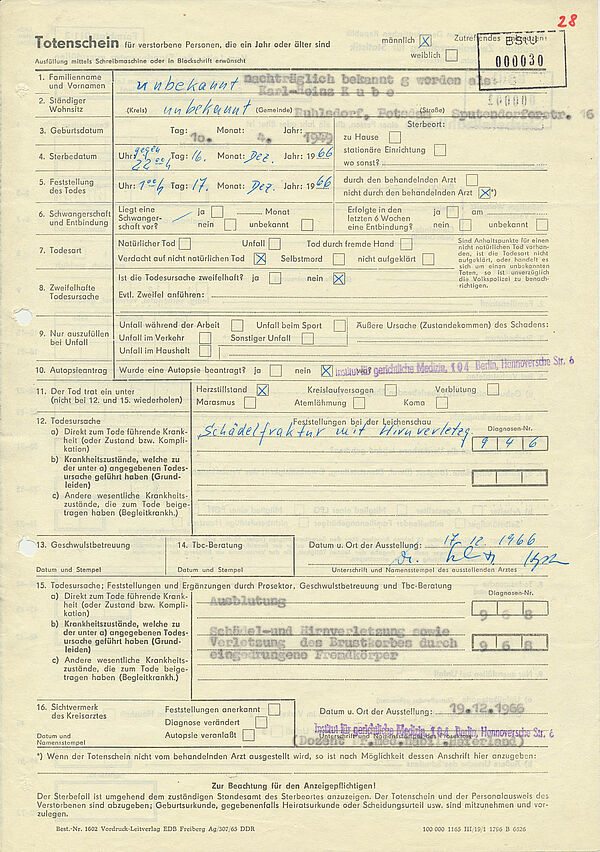 28
BStU
000030
Totenschein für verstorbene Personen, die ein Jahr oder älter sind
männlich
weiblich
Zutreffendes
Ausfüllung mittels Schreibmaschine oder in Blockschrift erwünscht
1. Familienname und Vornamen
unbekannt nachträglich bekannt geworden als:
Karl-Heinz Kube
2. Ständiger Wohnsitz
(Kreis) unbekannt (Gemeinde) (Straße)
Ruhlsdorf, Potsdam Sputendorferstr. 16
3. Geburtsdatum
Tag: 10. Monat: 4. Jahr: 1949
Sterbeort:
zu Hause
stationäre Einrichtung
wo sonst?
4. Sterbedatum
Uhr: gegen 22 00 h Tag: 16. Monat: Dez. Jahr: 1966
5. Feststellung des Todes
Uhr: 1 00 h Tag: 17. Monat: Dez. Jahr: 1966
durch den behandelnden Arzt
nicht durch den behandelnden Arzt *)
6. Schwangerschaft und Entbindung
Liegt eine Schwangerschaft vor? ja Monat
nein unbekannt
Erfolgte in den letzten 6 Wochen eine Entbindung? ja am
nein unbekannt
7. Todesart
Natürlicher Tod Unfall Tod durch fremde Hand
Verdacht auf nicht natürlichen Tod Selbstmord nicht aufgeklärt
Sind Anhaltspunkte für einen
nicht natürlichen Tod vorhan-
den, ist die Todesart nicht
aufgeklärt, oder handelt es
sich um einen unbekannten
Toten, so ist unverzüglich
die Volkspolizei zu benach-
richtigen.
8. Zweifelhafte Todesursache
Ist die Todesursache zweifelhaft? ja nein
Evtl. Zweifel anführen:
9. Nur auszufüllen bei Unfall
Unfall während der Arbeit Unfall beim Sport Äußere Ursache (Zustandekommen) des Schadens:
Unfall im Verkehr Sonstiger Unfall
Unfall im Haushalt
10. Autopsieantrag
Wurde eine Autopsie beantragt? ja nein
Institut für gerichtliche Medizin, 104 Berlin, Hannoversche Str. 6
11. Der Tod trat ein unter
(nicht bei 12. und 15. wiederholen)
Herzstillstand Kreislaufversagen Verblutung
Marasmus Atemlähmung Koma
12. Todesursache
Feststellungen bei der Leichenschau
Diagnosen-Nr.
a) Direkt zum Tode führende Krank-
heit (oder Zustand bzw. Kompli-
kation)
Schädelfraktur mit Hirnverletzg.
946
b) Krankheitszustände, welche zu
der unter a) angegebenen Todes-
ursache geführt haben (Grund-
leiden)
c) Andere wesentliche Krankheits-
zustände, die zum Tode beige-
tragen haben (Begleitkrankh.)
13. Geschwulstbetreuung
14. Tbc-Beratung
Datum u. Ort der Ausstellung: 17.12.1966
Dr.
Datum und Stempel
Datum und Stempel
Unterschrift und Namensstempel des ausstellenden Arztes
15. Todesursache; Feststellungen und Ergänzungen durch Prosektor, Geschwulstbetreuung und Tbc-Beratung
Diagnosen-Nr.
a) Direkt zum Tode führende Krank-
heit (oder Zustand bzw. Kompli-
kation)
Ausblutung
968
b) Krankheitszustände, welche zu
der unter a) angegebenen Todes-
ursache geführt haben (Grund-
leiden)
Schädel-und Hirnverletzung sowie
Verletzung des Brustkorbes durch
eingedrungene Fremdkörper
968
c) Andere wesentliche Krankheits-
zustände, die zum Tode beige-
tragen haben (Begleitkrankh.)
16. Sichtvermerk des Kreisarztes
Feststellungen anerkannt
Diagnose verändert
Autopsie veranlaßt
Datum und Namensstempel
Datum u. Ort der Ausstellung: 19.12.1966
Institut für gerichtliche Medizin, 104 Berlin, Hannoversche Str. 6
Unterschrift und Namensstempel des Prosektors
*) Wenn der Totenschein nicht vom behandelnden Arzt ausgestellt wird, so ist nach Möglichkeit dessen Anschrift hier anzugeben:
Zur Beachtung für den Anzeigepflichtigen!
Der Sterbefall ist umgehend dem zuständigen Standesamt des Sterbeortes anzuzeigen. Der Totenschein und der Personalausweis des
Verstorbenen sind abzugeben; Geburtsurkunde, gegebenenfalls Heiratsurkunde oder Scheidungsurteil usw. sind mitzunehmen und vor-
zulegen.
Best.-Nr. 1602 Vordruck-Leitverlag EDB Freiberg Ag/307/65 DDR
100 000 1165 III/19/1 1796 B 6526